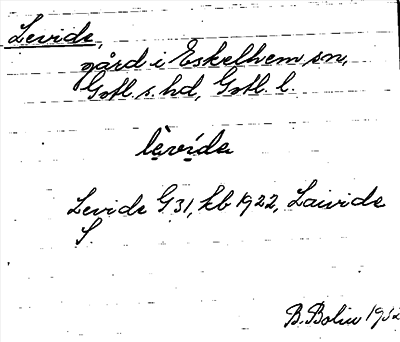 Levide,
gård i Eskelhem sn,
Gotl. s. hd, Gotl. l.
lèvídɐ
Levide G 31, kb 1922, Lawide
S.
B. Bolin 1932